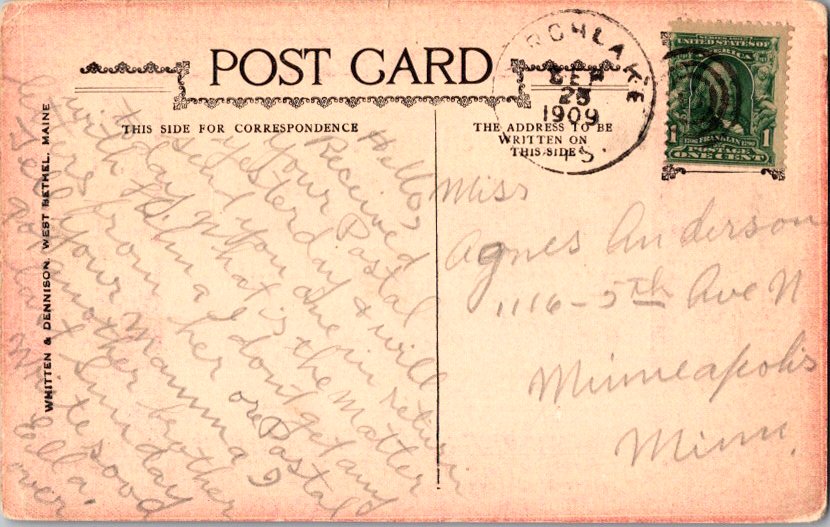 POST CARD
THIS SIDE FOR CORRESPONDENCE
THE ADDRESS TO BE
WRITTEN ON
THIS SIDE
WHITTEN & DENNISON, WEST BETHEL, MAINE
RCHLAKE
SEP
25
1909
UNITED STATES OF
AMERICA
1 FRANKLIN 1
POSTAGE
ONE CENT
Hello,
Received
your Postal
yesterday & will
send you one in return
today. What is the matter
with I don't get any
letters from her or Postal
Tell your Mamma I
got another brother
last Sunday
Write soon
Ella.
over
Miss
Agnes Anderson
1116-5th Ave N
Minneapolis
Minn.